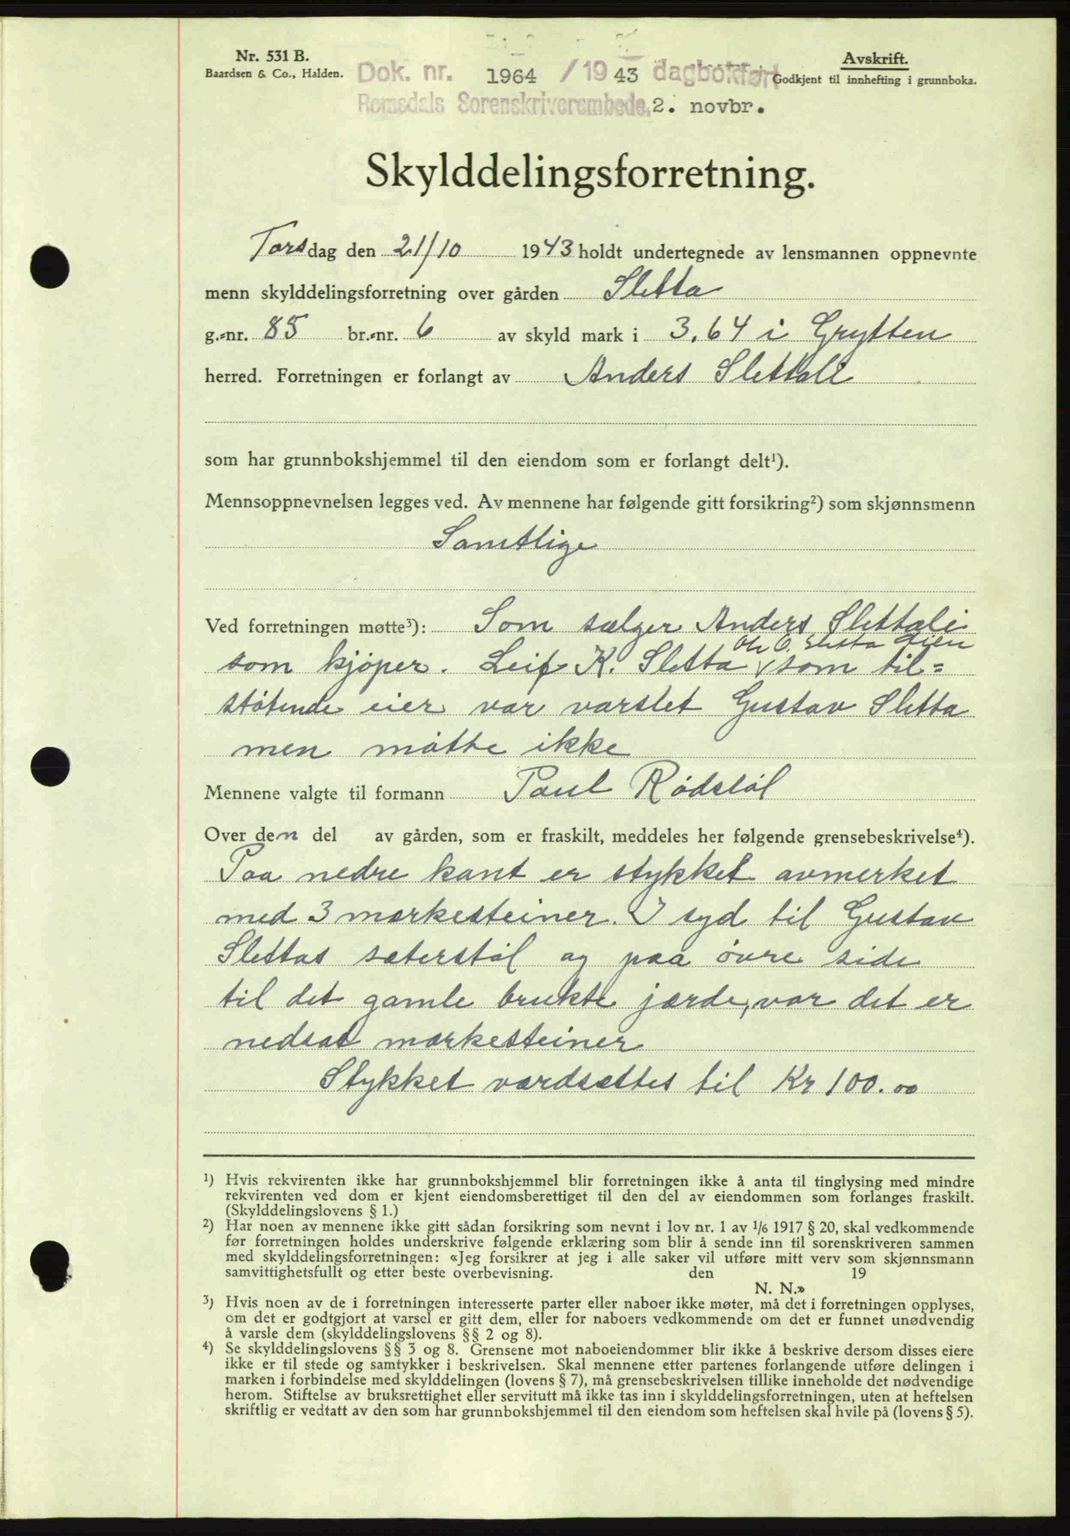 Nr. 531 B.
Baardsen & Co., Halden.
Dok. nr. 1964 / 1943 dagbokført
Romsdals Sorenskriverembede, 2. novbr.
Avskrift.
Godkjent til innhefting i grunnboka.
Skylddelingsforretning.
Torsdag den 21/10 1943 holdt undertegnede av lensmannen oppnevnte
menn skylddelingsforretning over gården Sletta
g.-nr. 85 br.-nr. 6 av skyld mark i 3,64 i Grytten
herred. Forretningen er forlangt av Anders Slettali
som har grunnbokshjemmel til den eiendom som er forlangt delt¹).
Mennsoppnevnelsen legges ved. Av mennene har følgende gitt forsikring²) som skjønnsmenn
Samtlige
Ved forretningen møtte³): Som sælger Anders Slettali
O. Sletta
som kjøper. Leif K. Sletta som til=
støtende eier var varslet Gustav Sletta
men møtte ikke
Mennene valgte til formann Paul Rødstøl
Over den del av gården, som er fraskilt, meddeles her følgende grensebeskrivelse⁴).
Paa nedre kant er stykket avmerket
med 3 markesteiner. I syd til Gustav
Slettas sæterstøl og paa øvre side
til det gamle brukte jærde, var det er
nedsat markesteiner
Stykket værdsættes til Kr 100.00
¹) Hvis rekvirenten ikke har grunnbokshjemmel blir forretningen ikke å anta til tinglysing med mindre
rekvirenten ved dom er kjent eiendomsberettiget til den del av eiendommen som forlanges fraskilt.
(Skylddelingslovens § 1.)
²) Har noen av mennene ikke gitt sådan forsikring som nevnt i lov nr. 1 av 1/6 1917 § 20, skal vedkommende
før forretningen holdes underskrive følgende erklæring som blir å sende inn til sorenskriveren sammen
med skylddelingsforretningen: «Jeg forsikrer at jeg i alle saker vil utføre mitt verv som skjønnsmann
samvittighetsfullt og etter beste overbevisning. den 19
N. N.»
³) Hvis noen av de i forretningen interesserte parter eller naboer ikke møter, må det i forretningen opplyses,
om det er godtgjort at varsel er gitt dem, eller for naboers vedkommende om det er funnet unødvendig
å varsle dem (skylddelingslovens §§ 2 og 8).
⁴) Se skylddelingslovens §§ 3 og 8. Grensene mot naboeiendommer blir ikke å beskrive dersom disses eiere
ikke er til stede og samtykker i beskrivelsen. Skal mennene etter partenes forlangende utføre delingen i
marken i forbindelse med skylddelingen (lovens § 7), må grensebeskrivelsen tillike inneholde det nødvendige
herom. Stiftelse av bruksrettighet eller servitutt må ikke tas inn i skylddelingsforretningen, uten at heftelsen
skriftlig er vedtatt av den som har grunnbokshjemmel til den eiendom som heftelsen skal hvile på (lovens § 5).